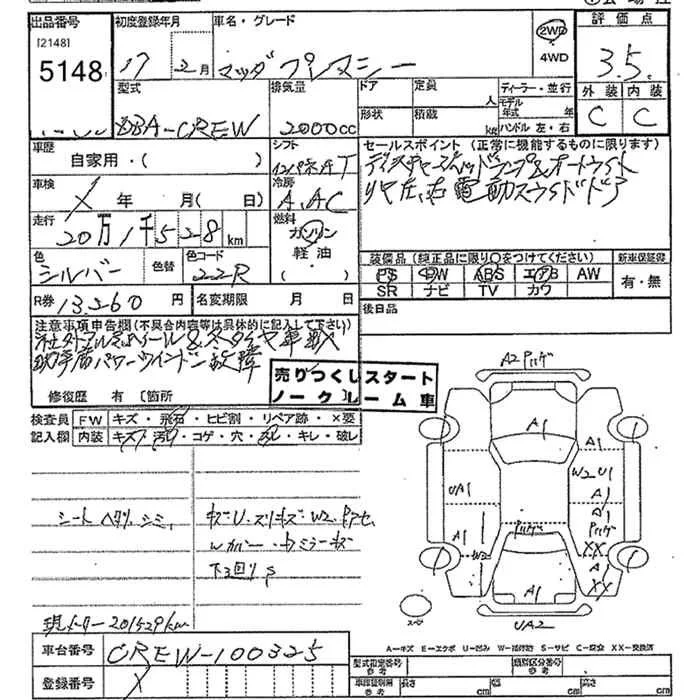 出品番号
[2148]
5148
初度登録年月
17年2月
車名・グレード
マツダ プレマシー
2WD
4WD
評価点
3.5
外装 内装
C C
型式
DBA-CREW
排気量
2000cc
ドア
形状
定員
人
積載
kg
ディーラー・並行
モデル年式 年
ハンドル 左・右
車歴
自家用・( )
シフト
インパネAT
セールスポイント (正常に機能するものに限ります)
ディスチャージヘッドランプ&オートライト
リヤ左、右電動スライドドア
車検
X 年 月( 日)
冷房
A.AC
走行
20万1千528km
燃料
ガソリン
軽油
( )
色
シルバー
色替
色コード
22R
装備品 (純正品に限り〇をつけてください)
PS PW ABS エアB AW
SR ナビ TV カワ
新車保証書
有・無
R券 13,260円
名変期限 月 日
後日品
注意事項申告欄 (不具合内容等は具体的に記入して下さい)
社外アルミホイール&冬タイヤ車載
助手席パワーウインドー故障
修復歴 有 〔箇所
売りつくしスタート
ノークレーム車
検査員
記入欄
FW キズ・飛石・ヒビ割・リペア跡・×要
内装 キズ・汚れ・コゲ・穴・スレ・キレ・破レ
シート ヘタリ、シミ
キズU・スリキズ・W2・
Wカバー・
下回りS
現メーター201529km
A2 ハゲ
A1
A1
W2 U1
A1
UA1
A1
ハゲ
XX
W2
A1
XX
A1
スペア
UA2
A=キズ E=エクボ U=凹み W=補修跡 S=サビ C=腐食 XX=交換済
車台番号
CREW-100325
登録番号
X
型式指定番号
参考
類別区分番号
参考
車検証制原
参考
長さ cm
幅 cm
高さ cm